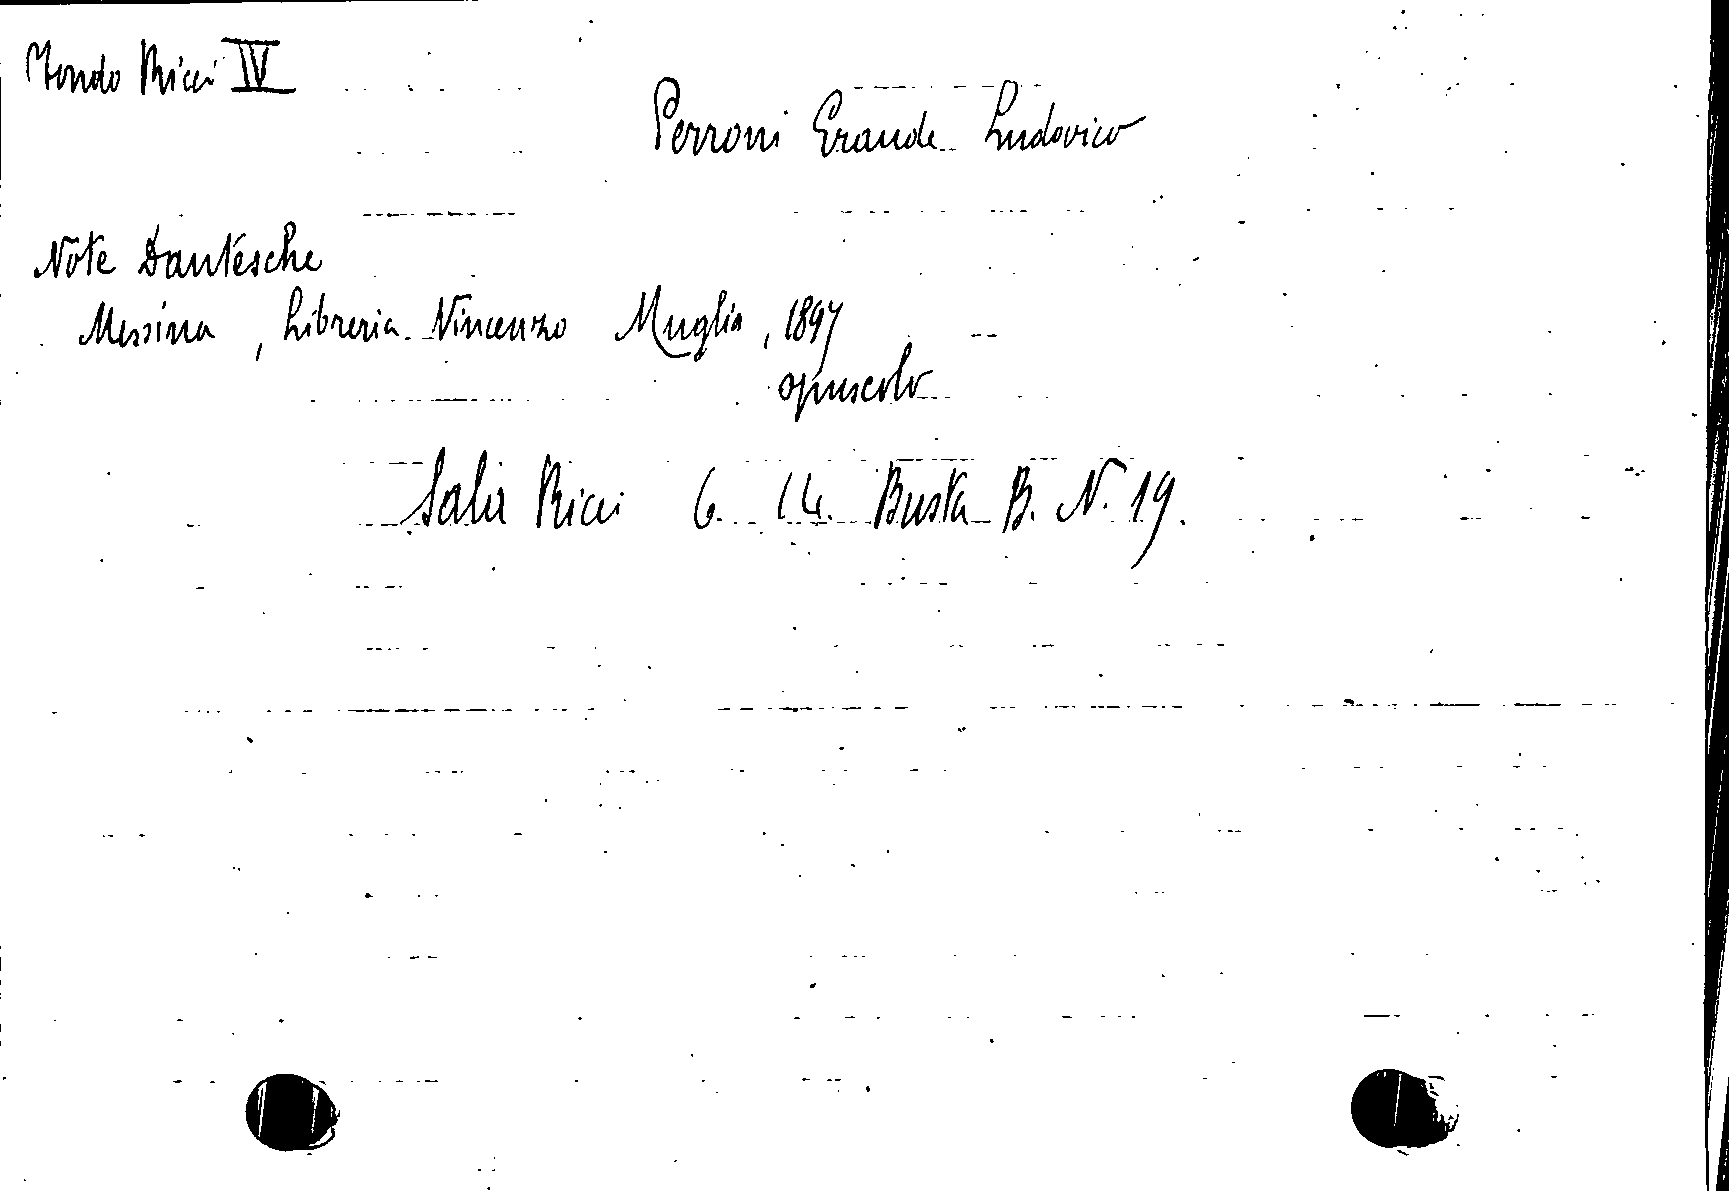 Fondo Ricci IV
Perroni Grande Ludovico
Note Dantesche
Messina, Libreria Vincenzo Muglia, 1897
opuscolo
Sala Ricci 6. 14. Busta B. N. 19.